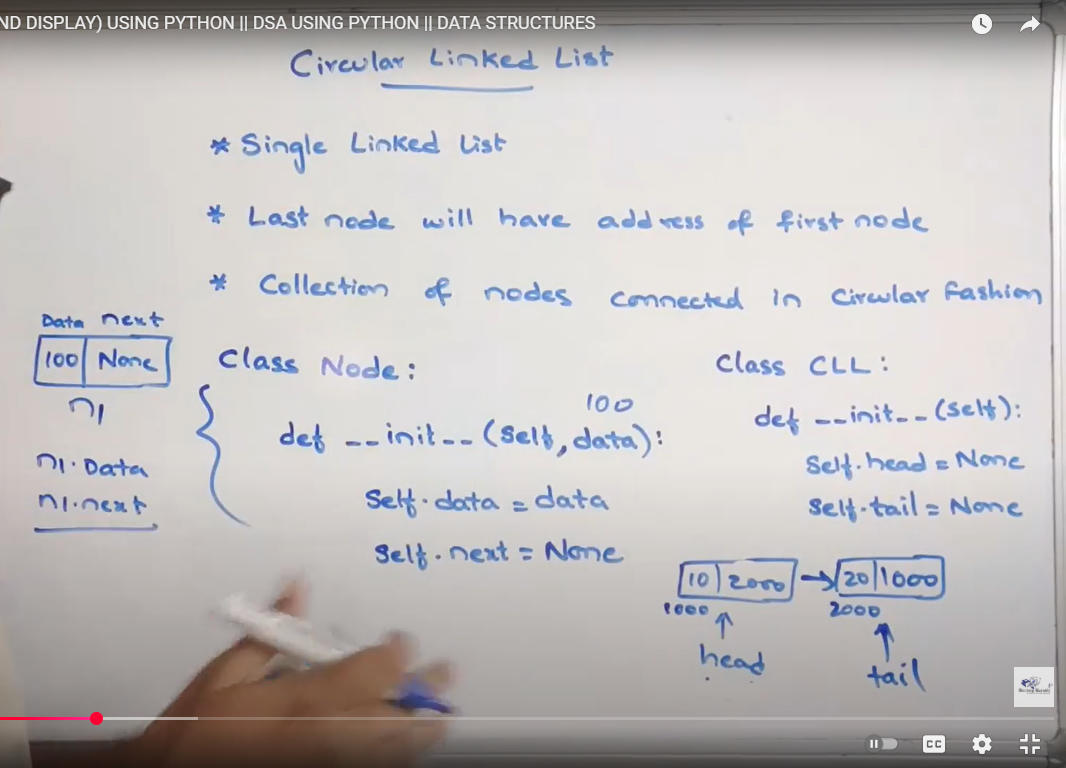 ND DISPLAY) USING PYTHON || DSA USING PYTHON || DATA STRUCTURES
Circular Linked List
* Single Linked List
* Last node will have address of first node
* Collection of nodes connected in Circular Fashion
Data next
100 None
n1
n1.Data
n1.next
Class Node:
100
def __init__(self, data):
self.data = data
self.next = None
Class CLL:
def __init__(self):
self.head = None
self.tail = None
10 2000 → 20 1000
1000 2000
head
tail
CC